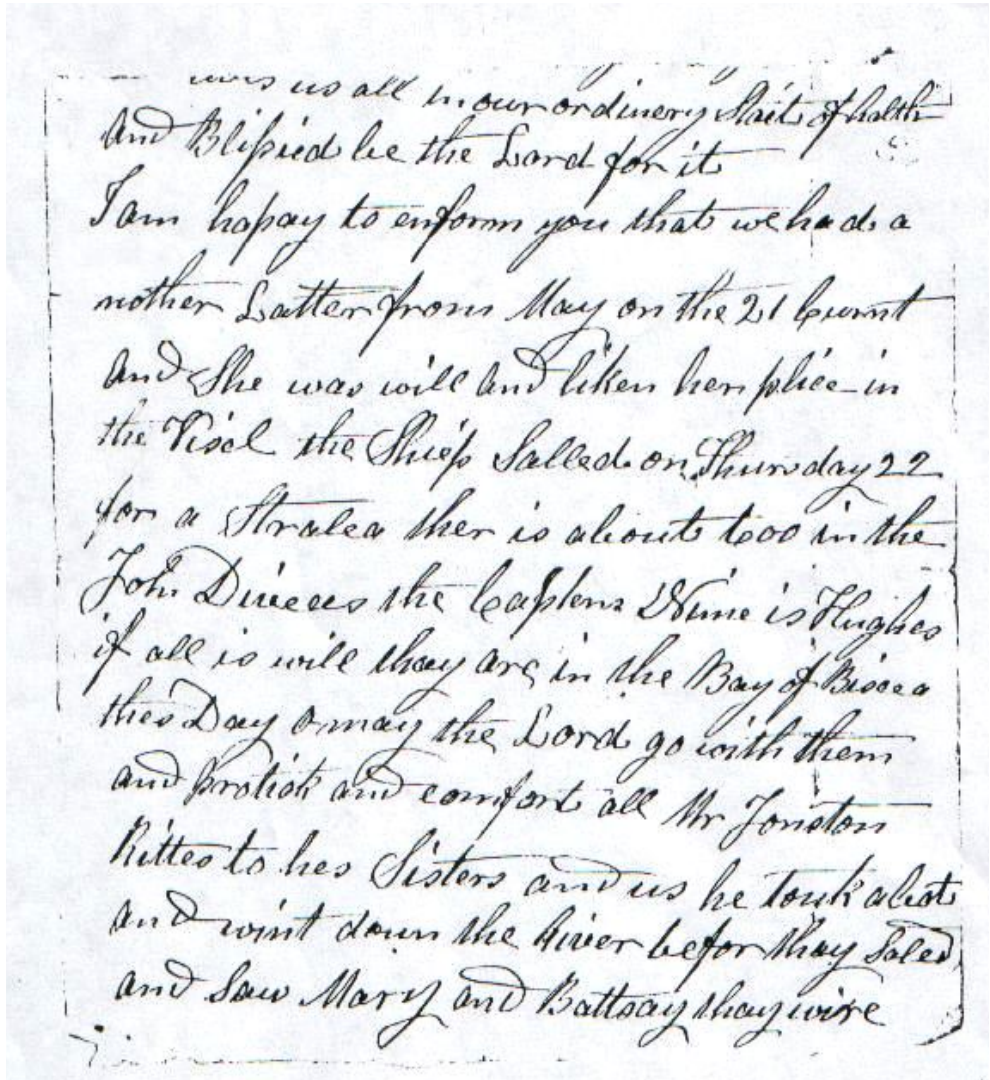 us all in our ordinery Stait of halth
And Blissied be the Lord for it
I am hapay to enform you that we had a
nother Latter from May on the 21 Curnt
And She was will And liken her plice in
the Visel the Ship Salled on Thursday 22
for a Stralea ther is about 600 in the
John the Capten Nime is Hughes
if all is will thay are in the Bay of Biscea
thes Day o may the Lord go with them
and protick and comfort all Mr Jonston
Rittes to hes Sisters and us he touk a bot
and wint down the River befor thay Saled
and Saw Mary and Battsay thay wire